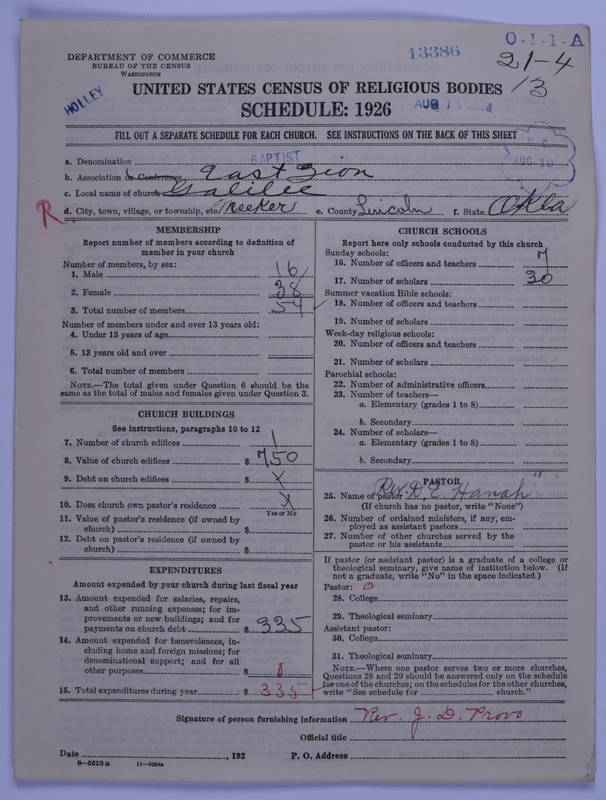 O-1-1-A
13386
21-4
13
DEPARTMENT OF COMMERCE
BUREAU OF THE CENSUS
WASHINGTON
HOLLEY
UNITED STATES CENSUS OF RELIGIOUS BODIES
SCHEDULE: 1926
AUG
FILL OUT A SEPARATE SCHEDULE FOR EACH CHURCH. SEE INSTRUCTIONS ON THE BACK OF THIS SHEET
AUG 19
a. Denomination BAPTIST
b. Association or Conference East Zion
c. Local name of church Galilee
R d. City, town, village, or township, etc. Meeker e. County Lincoln f. State Okla
MEMBERSHIP
Report number of members according to definition of
member in your church
Number of members, by sex:
1. Male 16
2. Female 38
3. Total number of members 54
Number of members under and over 13 years old:
4. Under 13 years of age
5. 13 years old and over
6. Total number of members
NOTE.—The total given under Question 6 should be the
same as the total of males and females given under Question 3.
CHURCH BUILDINGS
See instructions, paragraphs 10 to 12
7. Number of church edifices 1
8. Value of church edifices $ 750
9. Debt on church edifices $ X
10. Does church own pastor's residence X
Yes or No
11. Value of pastor's residence (if owned by
church) $
12. Debt on pastor's residence (if owned by
church) $
EXPENDITURES
Amount expended by your church during last fiscal year
13. Amount expended for salaries, repairs,
and other running expenses; for im-
provements or new buildings; and for
payments on church debt $ 335
14. Amount expended for benevolences, in-
cluding home and foreign missions; for
denominational support; and for all
other purposes $
15. Total expenditures during year $ 335
CHURCH SCHOOLS
Report here only schools conducted by this church
Sunday schools:
16. Number of officers and teachers 7
17. Number of scholars 30
Summer vacation Bible schools:
18. Number of officers and teachers
19. Number of scholars
Week-day religious schools:
20. Number of officers and teachers
21. Number of scholars
Parochial schools:
22. Number of administrative officers
23. Number of teachers—
a. Elementary (grades 1 to 8)
b. Secondary
24. Number of scholars—
a. Elementary (grades 1 to 8)
b. Secondary
PASTOR
25. Name of pastor Rev. D. E. Hanah
(If church has no pastor, write "None")
26. Number of ordained ministers, if any, em-
ployed as assistant pastors
27. Number of other churches served by the
pastor or his assistants
If pastor (or assistant pastor) is a graduate of a college or
theological seminary, give name of institution below. (If
not a graduate, write "No" in the space indicated.)
Pastor: 0
28. College
29. Theological seminary
Assistant pastor:
30. College
31. Theological seminary
NOTE.—Where one pastor serves two or more churches,
Questions 28 and 29 should be answered only on the schedule
for one of the churches; on the schedules for the other churches,
write "See schedule for church."
Signature of person furnishing information Rev. J. D. Provo
Official title
Date , 192 P. O. Address
8—5513 a 11—9084a